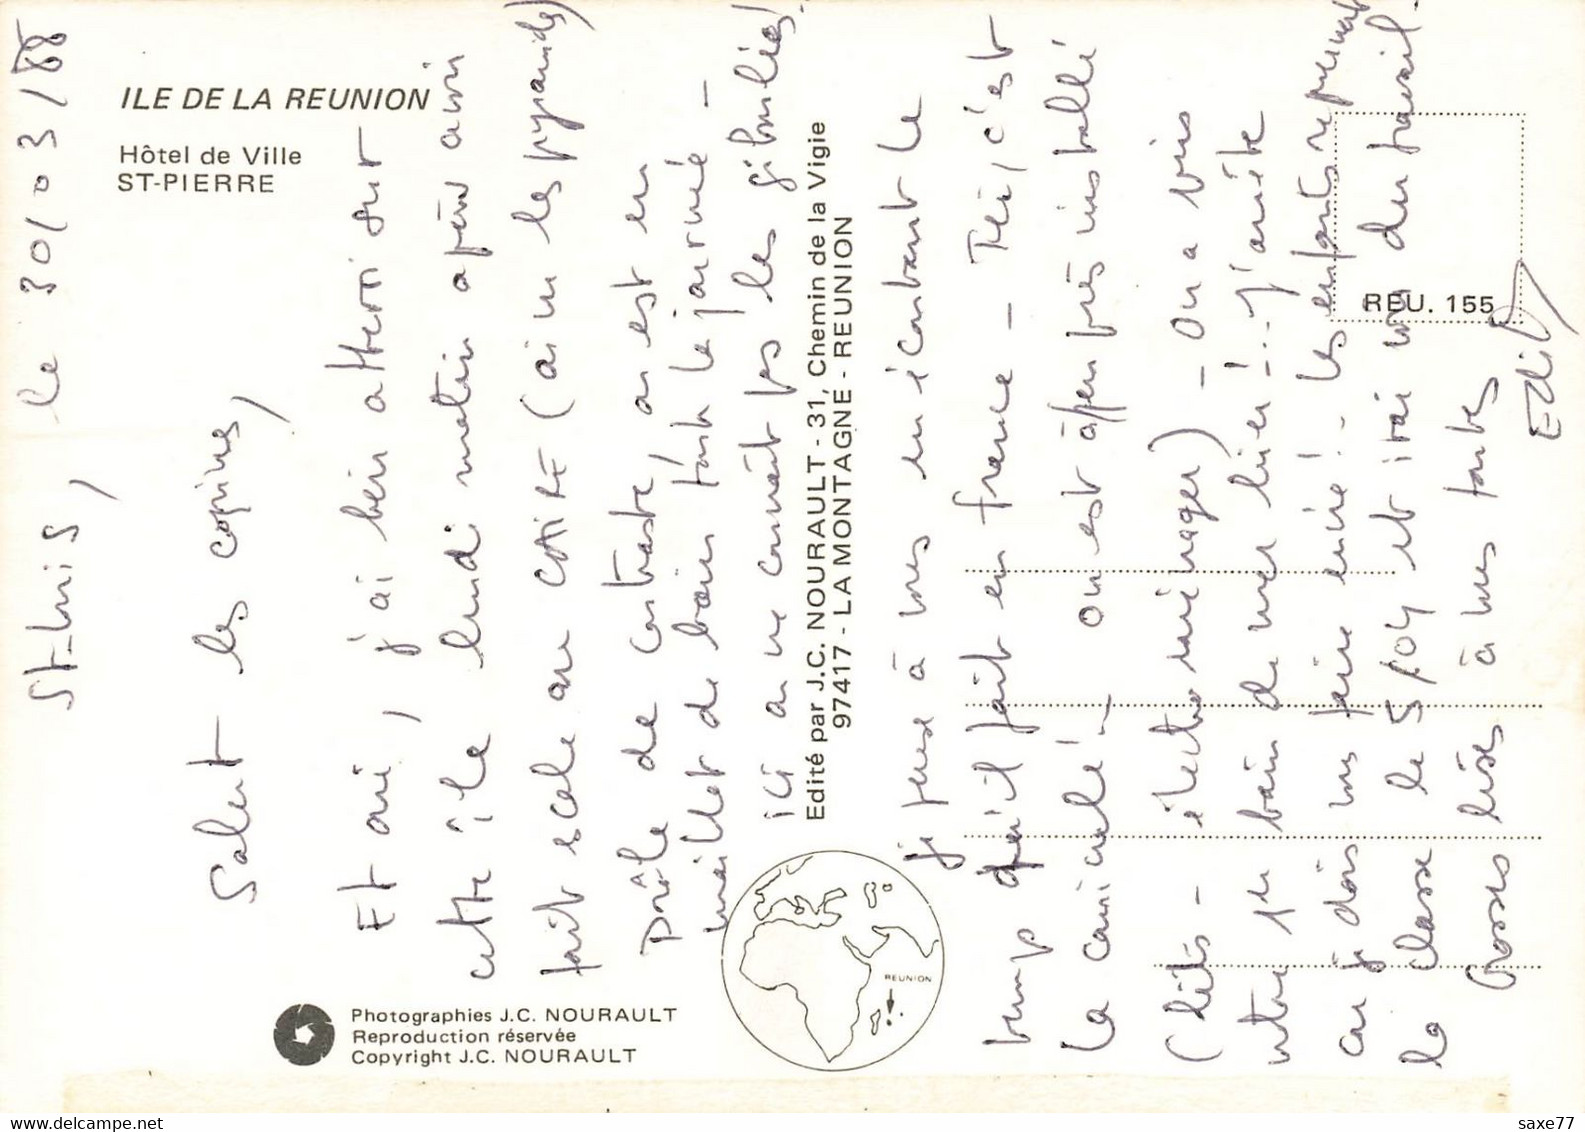 ILE DE LA REUNION
Hôtel de Ville
ST-PIERRE
St-Louis, le 30/03/88
Salut les copines,
Et oui, j'ai bien atterri sur
cette île lundi matin après avoir
fait escale au CAIRE (ai vu les pyramides)
Drôle de contraste, on est en
maillot de bain toute la journée -
ici on ne connaît pas les giboulées!
je pense à vous en écoutant le
temps qu'il fait en France - Ici, c'est
la canicule! - on est à peu près installé
(lits - électroménager) - On a pris
notre 1er bain de mer hier!.. j'arrête
car je dois vous faire envie! - les enfants reprennent
la classe le 5/04 et irai du travail.
Grosses bises à vous toutes
Edith
Edité par J.C. NOURAULT - 31, Chemin de la Vigie
97417 - LA MONTAGNE - REUNION
REU. 155
REUNION
Photographies J.C. NOURAULT
Reproduction réservée
Copyright J.C. NOURAULT
saxe77